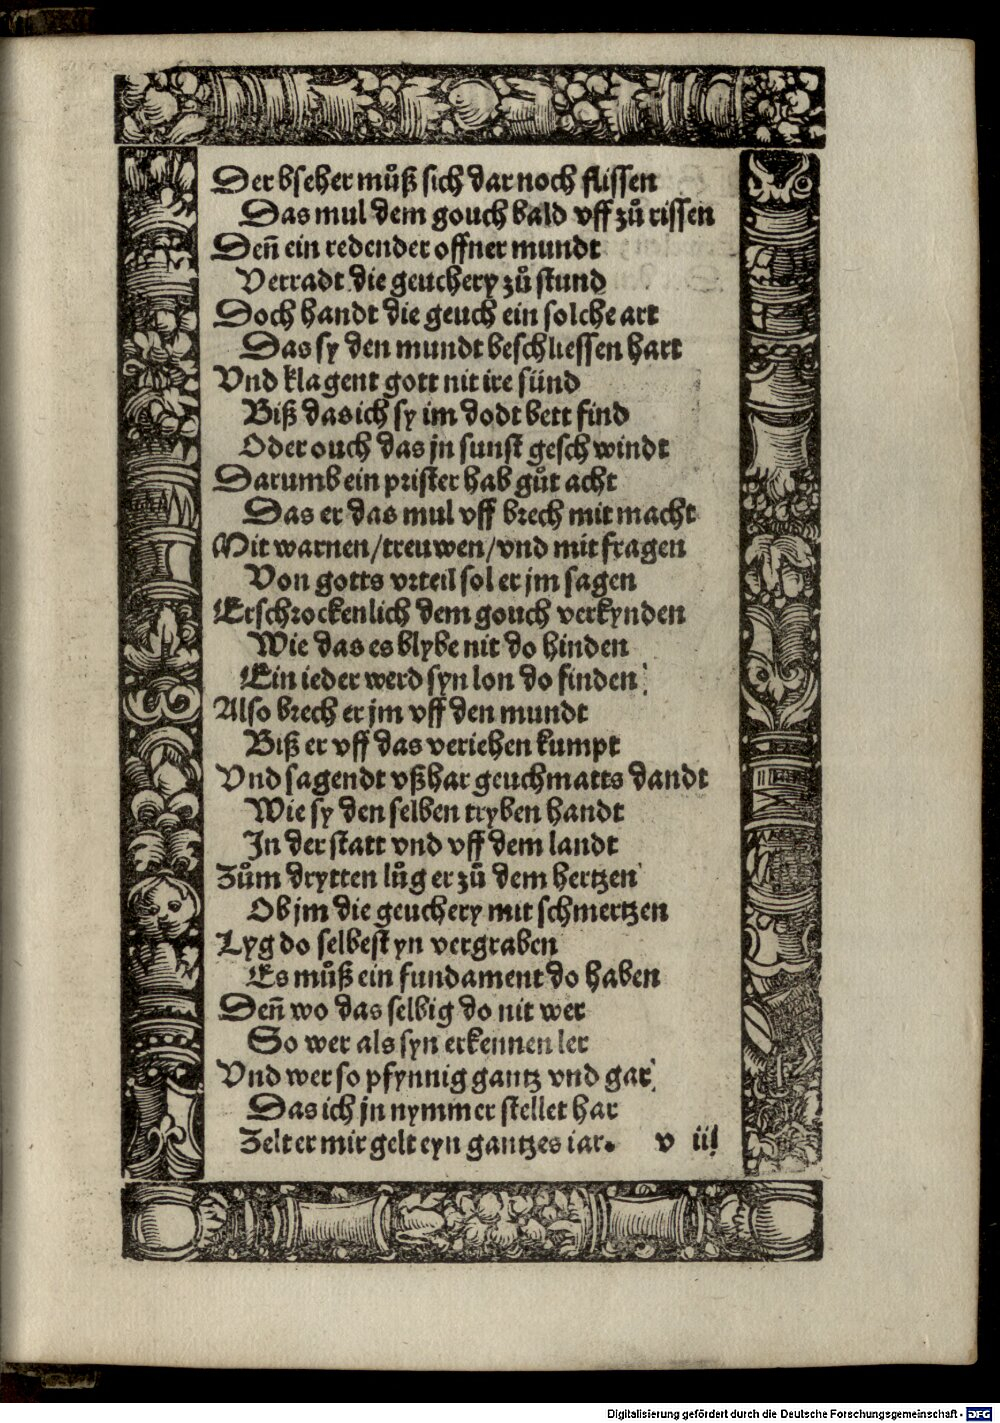 Der bseher můß sich dar noch flissen
Das mul dem gouch bald vff zů rissen
Deñ ein redender offner mundt
Verradt die geuchery zů stund
Doch handt die geuch ein solche art
Das sy den mundt beschliessen hart
Vnd klagent gott nit ire sünd
Biß das ich sy im dodt bett find
Oder ouch das jn sunst geschwindt
Darumb ein prister hab gůt acht
Das er das mul vff brech mit macht
Mit warnen/treuwen/vnd mit fragen
Von gotts vrteil sol er jm sagen
Erschrockenlich dem gouch verkynden
Wie das es blybe nit do hinden
Ein ieder werd syn lon do finden
Also brech er jm vff den mundt
Biß er vff das veriehen kumpt
Vnd sagendt vßhar geuchmatts dandt
Wie sy den selben tryben handt
In der statt vnd vff dem landt
Zům drytten lůg er zů dem hertzen
Ob jm die geuchery mit schmertzen
Lyg do selbest yn vergraben
Es můß ein fundament do haben
Deñ wo das selbig do nit wer
So wer als syn erkennen ler
Vnd wer so pfynnig gantz vnd gar
Das ich jn nymmer stellet har
Zelt er mir gelt eyn gantzes iar. v iij
Digitalisierung gefördert durch die Deutsche Forschungsgemeinschaft - DFG